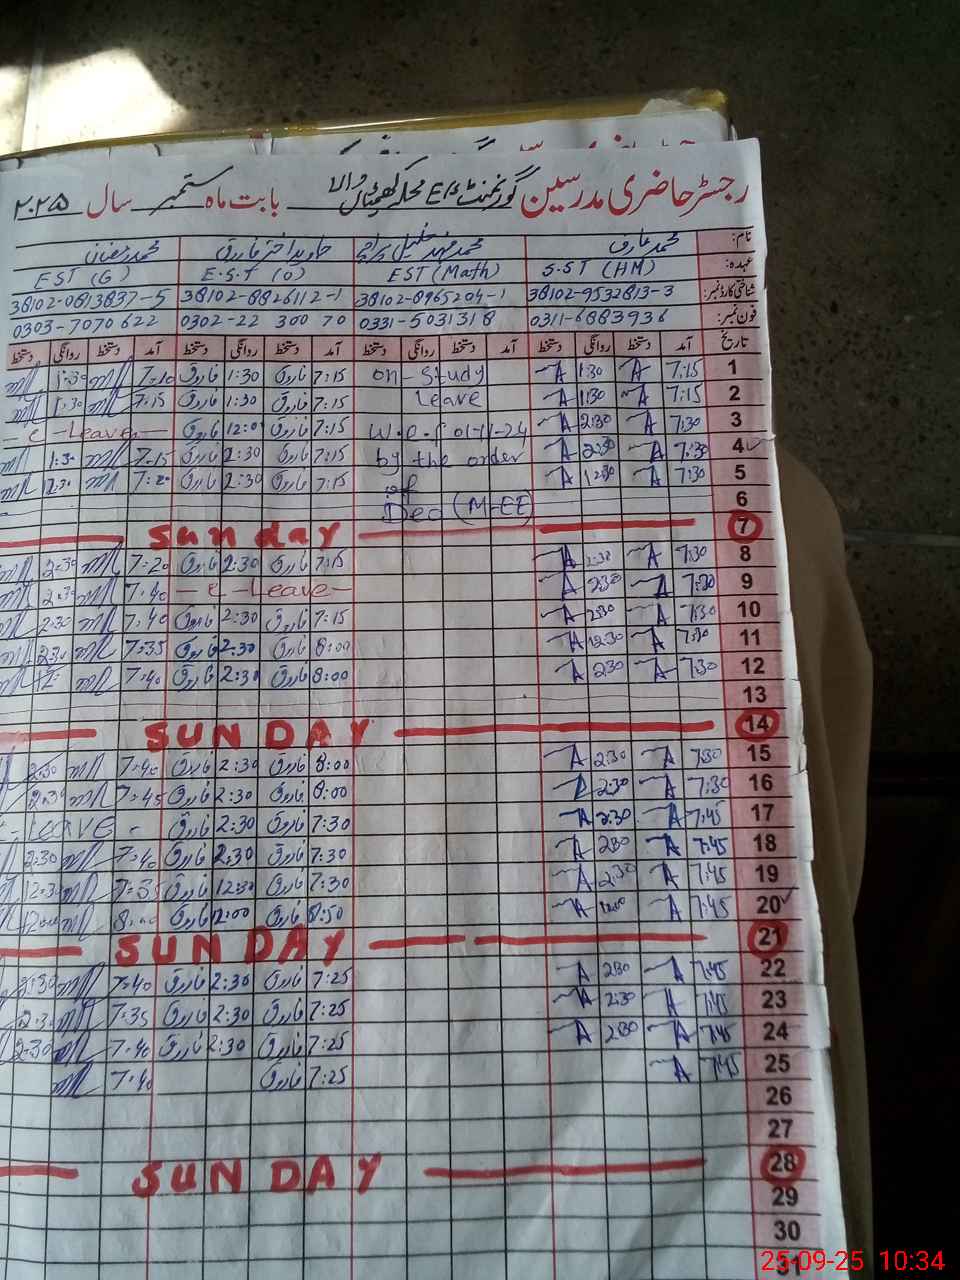 رجسٹر حاضری مدرسین گورنمنٹ بابت ماہ ستمبر سال ۲۰۲۵
نام: محمد عارف محمد جاوید اختر فاروق محمد رمضان
عہدہ: S.ST (HM) EST (Math) E.S.T (O) EST (G)
شناختی کارڈ نمبر: 38102-9532813-3 38102-8965204-1 38102-8826112-1 38102-0813837-5
فون نمبر: 0311-6883936 0331-5031318 0302-22 300 70 0303-7070622
تاریخ آمد دستخط روانگی دستخط آمد دستخط روانگی دستخط آمد دستخط روانگی دستخط آمد دستخط روانگی دستخط
1 7:15 A 1:30 A on-study 7:15 فاروق 1:30 فاروق 7:10 1:30
2 7:15 A 1:30 A Leave 7:15 فاروق 1:30 فاروق 7:15 1:30
3 7:30 A 2:30 A w.e.f 01-11-24 7:15 فاروق 12:00 فاروق - C - Leave -
4 7:30 A 2:30 A by the order 7:15 فاروق 2:30 فاروق 7:15 1:30
5 7:30 A 12:30 A of 7:15 فاروق 2:30 فاروق 7:20 2:30
6 Deo (M-EE)
7 Sunday
8 7:30 A 2:30 A 7:15 فاروق 2:30 فاروق 7:20 2:30
9 7:30 A 2:30 A - C - Leave - 7:40 2:30
10 7:30 A 2:30 A 7:15 فاروق 2:30 فاروق 7:40 2:30
11 7:30 A 12:30 A 8:00 فاروق 2:30 فاروق 7:35 2:30
12 7:30 A 2:30 A 8:00 فاروق 2:30 فاروق 7:40
13
14 SUNDAY
15 7:30 A 2:30 A 8:00 فاروق 2:30 فاروق 7:40 2:30
16 7:30 A 2:30 A 8:00 فاروق 2:30 فاروق 7:45 2:30
17 7:45 A 2:30 A 7:30 فاروق 2:30 فاروق - Leave -
18 7:45 A 2:30 A 7:30 فاروق 2:30 فاروق 7:40 2:30
19 7:45 A 2:30 A 7:30 فاروق 12:30 فاروق 7:35 12:30
20 7:45 A 12:00 A 8:50 فاروق 12:00 فاروق 8:00 12:00
21 SUNDAY
22 7:45 A 2:30 A 7:25 فاروق 2:30 فاروق 7:40 2:30
23 7:45 A 2:30 A 7:25 فاروق 2:30 فاروق 7:35 2:30
24 7:45 A 2:30 A 7:25 فاروق 2:30 فاروق 7:40 2:30
25 7:45 A 7:25 فاروق 7:40
26
27
28 SUNDAY
29
30
31
25-09-25 10:34